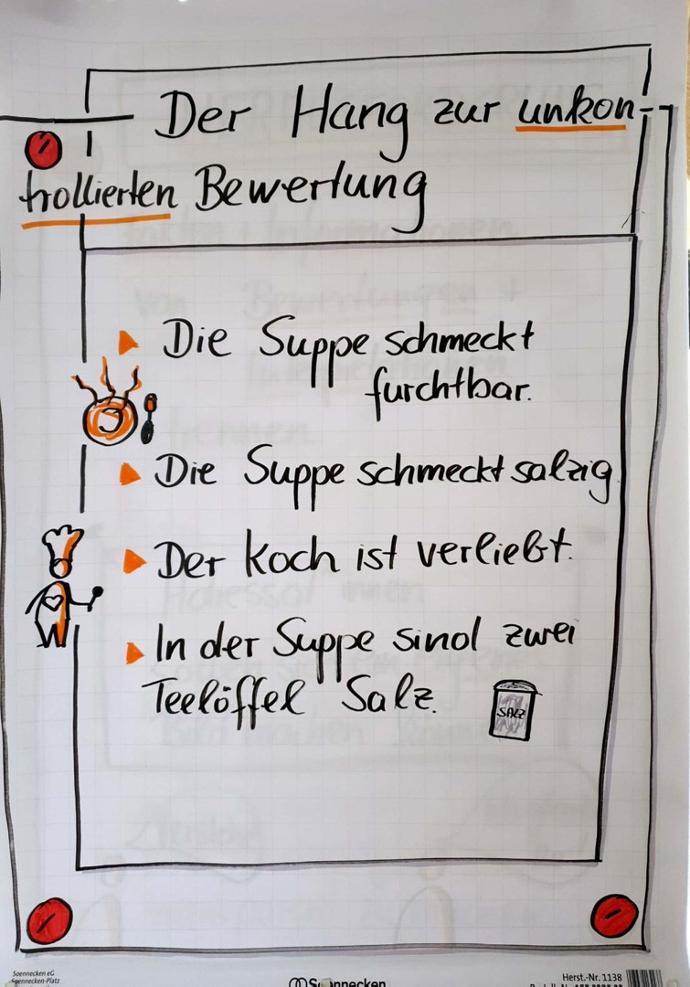 Der Hang zur unkon-
trollierten Bewertung
Die Suppe schmeckt
furchtbar.
Die Suppe schmeckt salzig
Der Koch ist verliebt.
In der Suppe sind zwei
Teelöffel Salz.
SALZ
Soennecken eG
Soennecken-Platz
Soennecken
Herst.-Nr. 1138